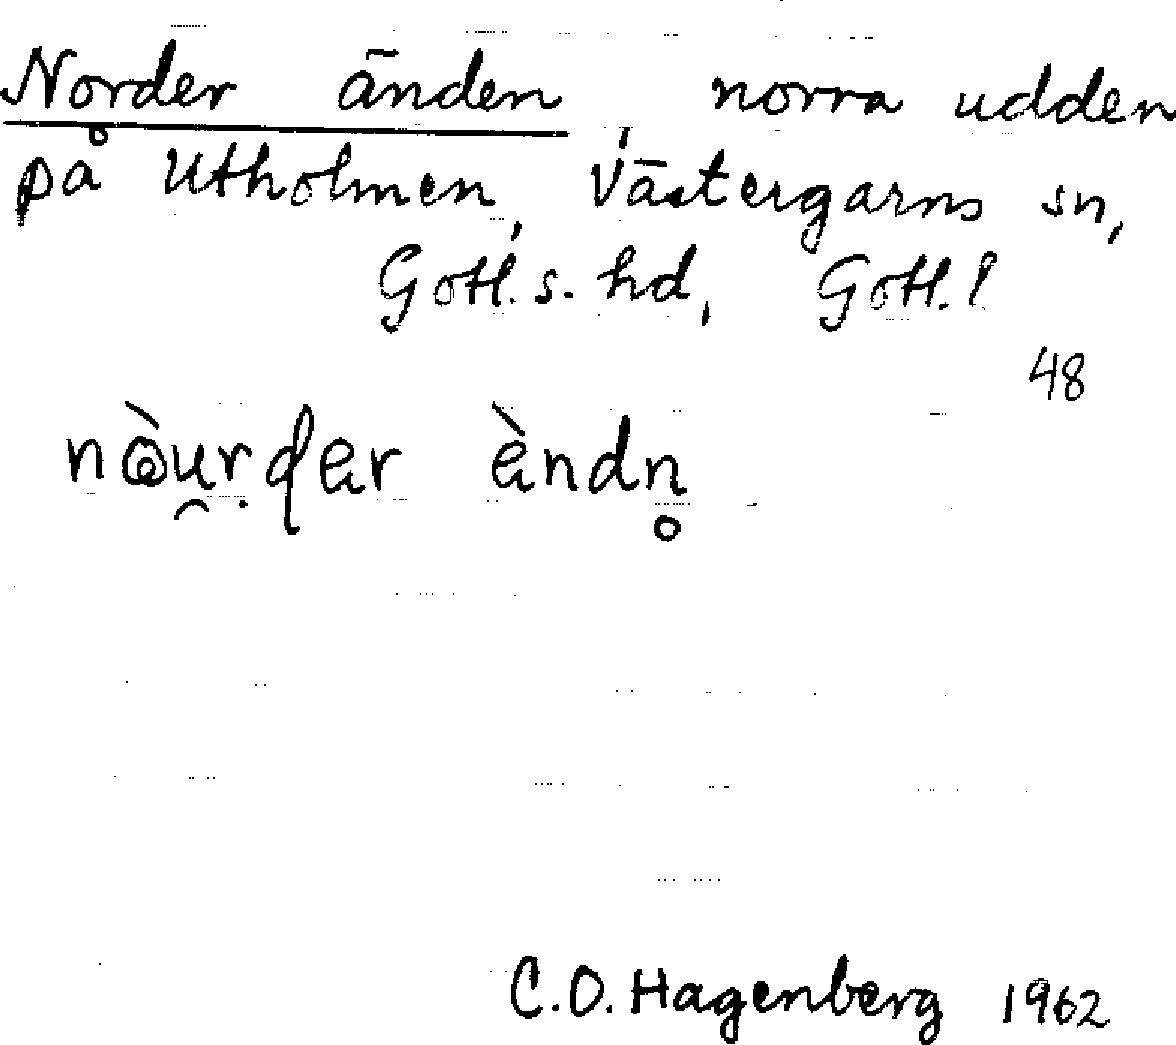 Norder änden, norra udden
på Utholmen, Västergarns sn,
Gotl. s. hd, Gotl. l
48
C.O. Hagenberg 1962